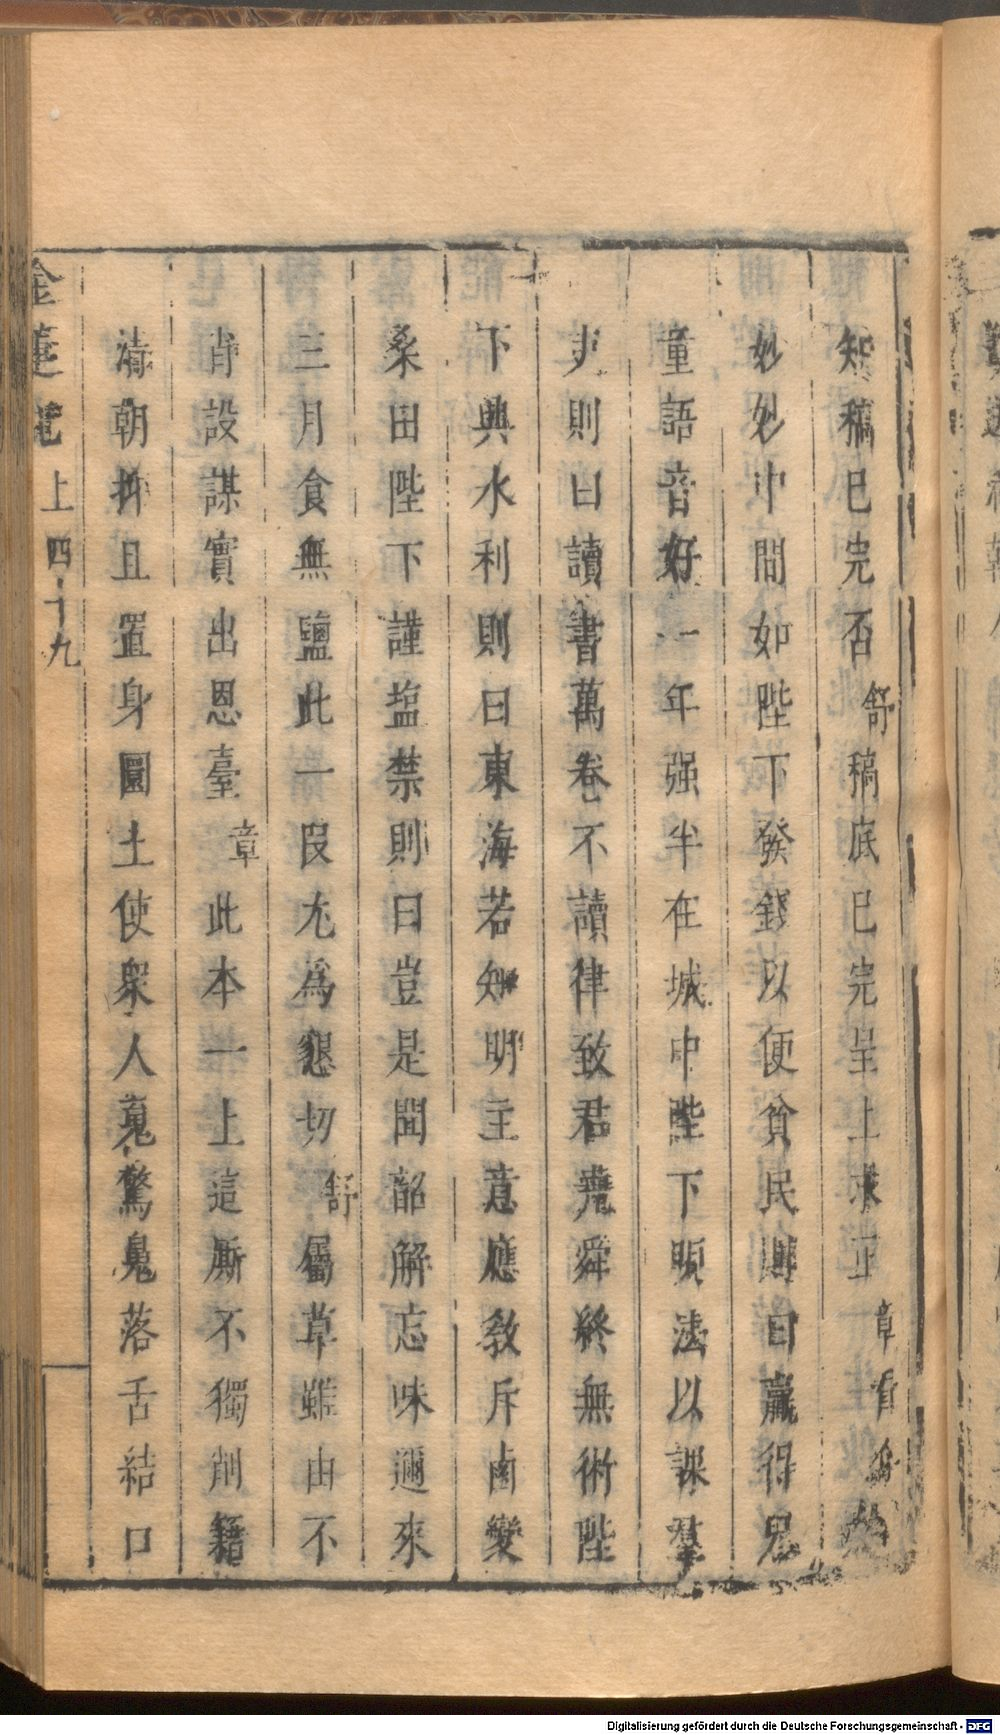 知稿已完否舒稿底已完呈上求正章看介
妙妙中間如陛下發錢以便貧民則曰贏得兒
童語音好一年强半在城中陛下頒法以課羣
吏則曰讀書萬卷不讀律致君堯舜終無術陛
下興水利則曰東海若知明主意應教斥鹵變
桑田陛下謹塩禁則曰豈是聞韶解忘味邇來
三月食無鹽此一叚尤爲懇切舒屬草雖由不
肖設謀實出恩臺章此本一上這厮不獨削籍
淸朝抑且置身圜土使衆人䰟驚鬼落舌結口
金蓮記上四十九
Digitalisierung gefördert durch die Deutsche Forschungsgemeinschaft - DFG